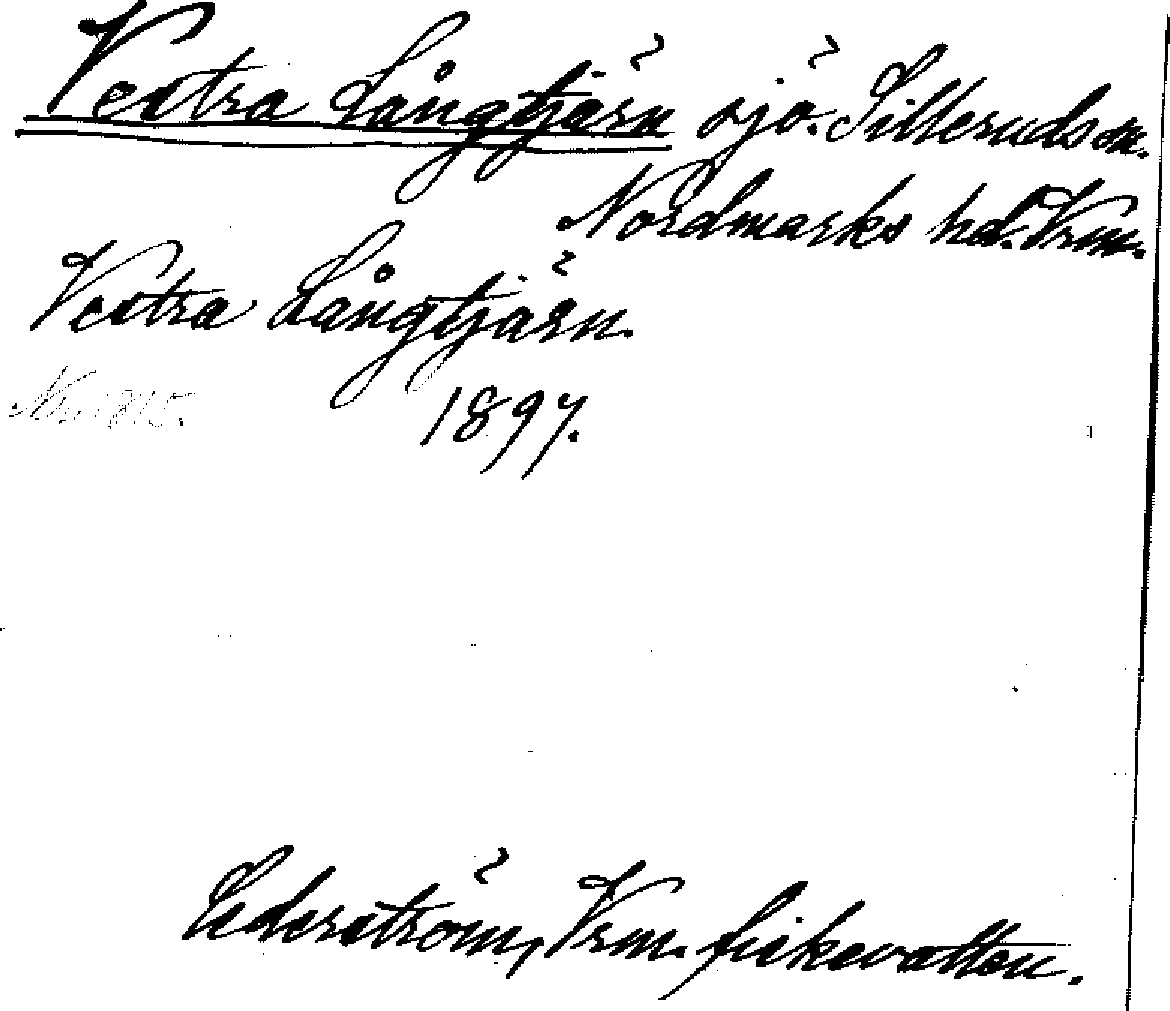 Vestra Långtjärn sjö. Silleruds sn.
Nordmarks hd. Vrm.
Vestra Långtjärn.
1897.
Cederström, Vrm. fiskevatten.